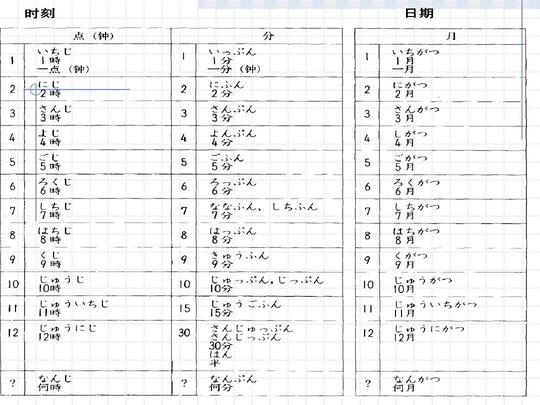 时刻
点（钟）
1
いちじ
1時
一点（钟）
2
にじ
2時
3
さんじ
3時
4
よじ
4時
5
ごじ
5時
6
ろくじ
6時
7
しちじ
7時
8
はちじ
8時
9
くじ
9時
10
じゅうじ
10時
11
じゅういちじ
11時
12
じゅうにじ
12時
?
なんじ
何時
分
1
いっぷん
1分
一分（钟）
2
にふん
2分
3
さんぷん
3分
4
よんぷん
4分
5
ごふん
5分
6
ろっぷん
6分
7
ななふん，しちふん
7分
8
はっぷん
8分
9
きゅうふん
9分
10
じゅっぷん，じっぷん
10分
15
じゅうごふん
15分
30
さんじゅっぷん
さんじっぷん
30分
はん
半
?
なんぷん
何分
日期
月
1
いちがつ
1月
一月
2
にがつ
2月
3
さんがつ
3月
4
しがつ
4月
5
ごがつ
5月
6
ろくがつ
6月
7
しちがつ
7月
8
はちがつ
8月
9
くがつ
9月
10
じゅうがつ
10月
11
じゅういちがつ
11月
12
じゅうにがつ
12月
?
なんがつ
何月